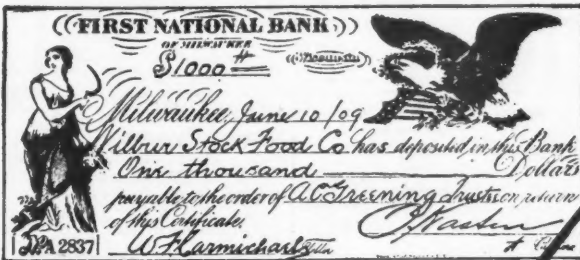 FIRST NATIONAL BANK
OF MILWAUKEE
$1000
Milwaukee, June 10/09
Wilbur Stock Food Co has deposited in this Bank
One thousand Dollars
payable to the order of A C Greening Trustee on return
of this Certificate.
No. A 2837 W F Carmichael Teller